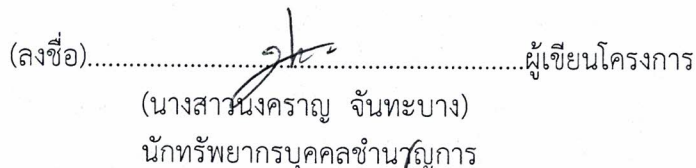 (ลงชื่อ)......................................................ผู้เขียนโครงการ
(นางสาวนงคราญ จันทะบาง)
นักทรัพยากรบุคคลชำนาญการ